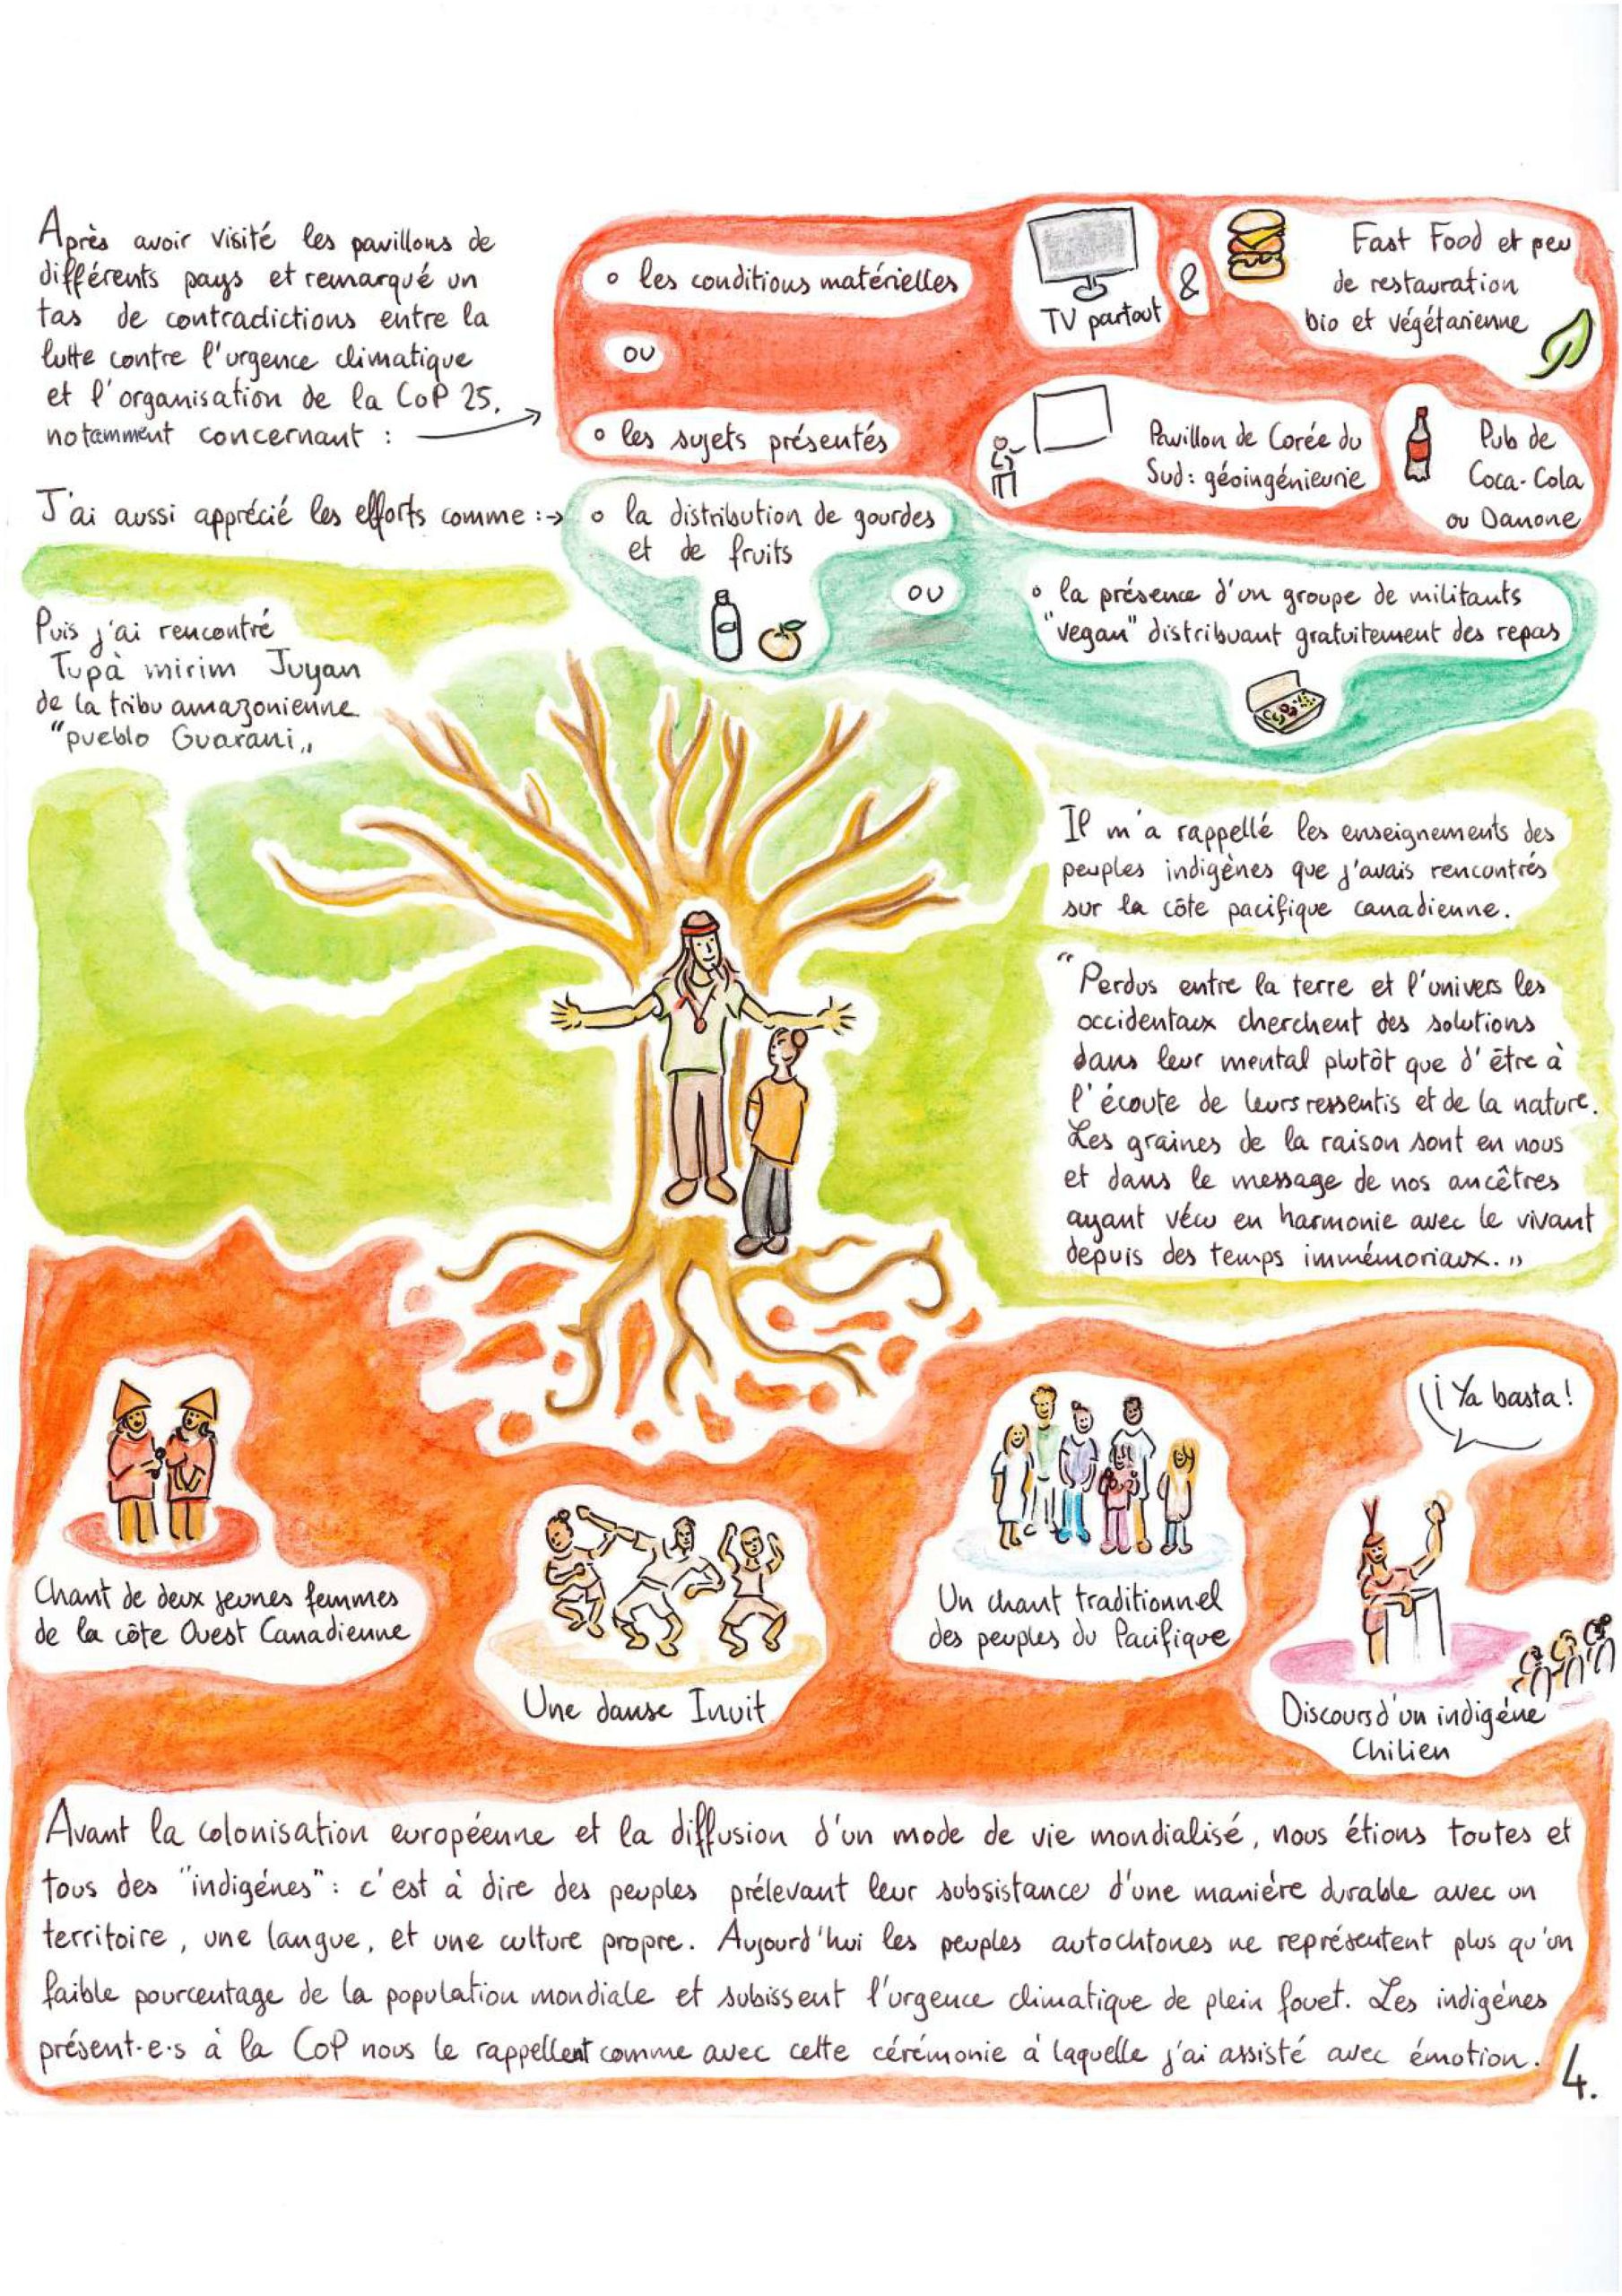 Après avoir visité les pavillons de
différents pays et remarqué un
tas de contradictions entre la
lutte contre l'urgence climatique
et l'organisation de la CoP 25,
notamment concernant :
o les conditions matérielles
ou
o les sujets présentés
TV partout
&
Fast Food et peu
de restauration
bio et végétarienne
Pavillon de Corée du
Sud: géoingénieurie
Pub de
Coca-Cola
ou Danone
J'ai aussi apprécié les efforts comme :
o la distribution de gourdes
et de fruits
ou
o la présence d'un groupe de militants
"vegan" distribuant gratuitement des repas
Puis j'ai rencontré
Tupà mirim Juyan
de la tribu amazonienne
"pueblo Guarani„
Il m'a rappellé les enseignements des
peuples indigènes que j'avais rencontrés
sur la côte pacifique canadienne.
"Perdus entre la terre et l'univers les
occidentaux cherchent des solutions
dans leur mental plutôt que d'être à
l'écoute de leurs ressentis et de la nature.
Les graines de la raison sont en nous
et dans le message de nos ancêtres
ayant vécu en harmonie avec le vivant
depuis des temps immémoriaux.„
Chant de deux jeunes femmes
de la côte Ouest Canadienne
Une danse Inuit
Un chant traditionnel
des peuples du Pacifique
¡¡ Ya basta!
Discours d'un indigéne
Chilien
Avant la colonisation européenne et la diffusion d'un mode de vie mondialisé, nous étions toutes et
tous des "indigénes": c'est à dire des peuples prélevant leur subsistance d'une maniére durable avec un
territoire, une langue, et une culture propre. Aujourd'hui les peuples autochtones ne représentent plus qu'un
faible pourcentage de la population mondiale et subissent l'urgence climatique de plein fouet. Les indigénes
présent·e·s à la CoP nous le rappellent comme avec cette cérémonie à laquelle j'ai assisté avec émotion.
4.